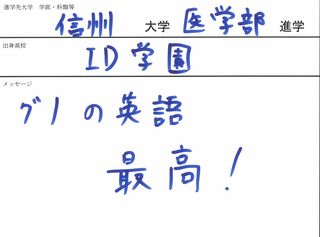 進学先大学 学部・科類等
信州 大学 医学部 進学
出身高校
ID学園
メッセージ
グノの英語
最高！